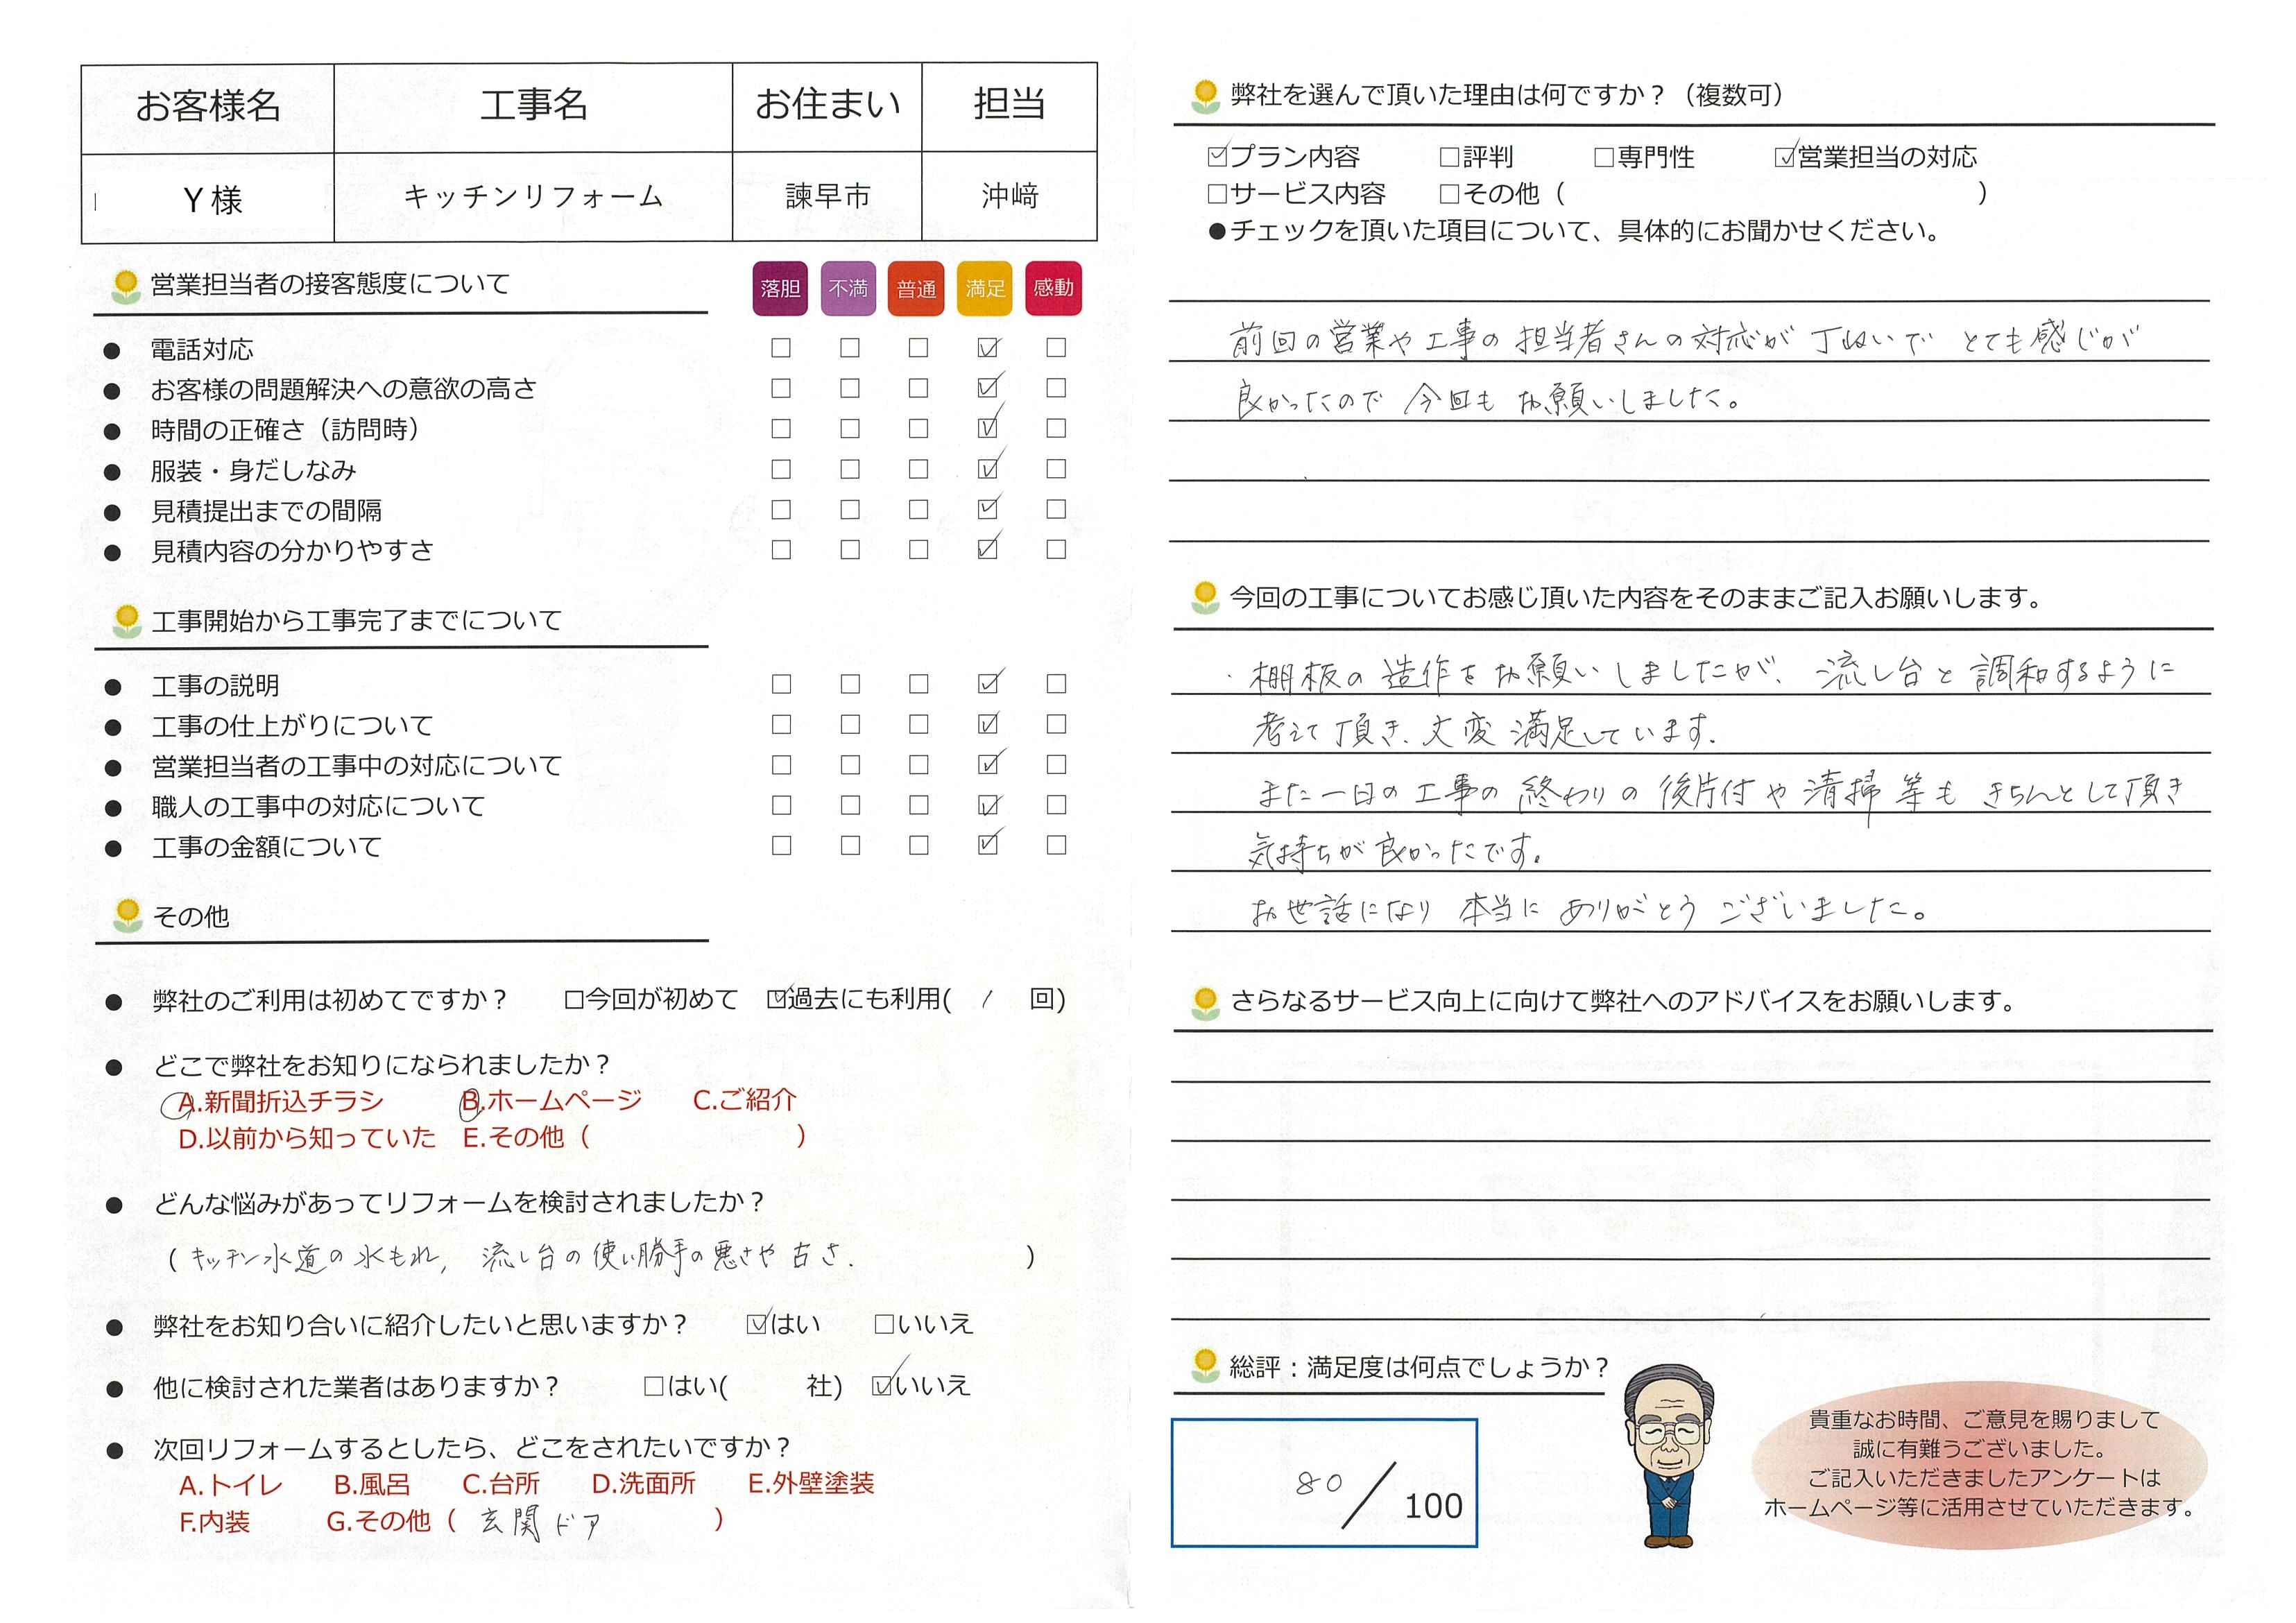 お客様名 工事名 お住まい 担当
Y様 キッチンリフォーム 諫早市 沖﨑
営業担当者の接客態度について 落胆 不満 普通 満足 感動
● 電話対応 □ □ □ ☑ □
● お客様の問題解決への意欲の高さ □ □ □ ☑ □
● 時間の正確さ（訪問時） □ □ □ ☑ □
● 服装・身だしなみ □ □ □ ☑ □
● 見積提出までの間隔 □ □ □ ☑ □
● 見積内容の分かりやすさ □ □ □ ☑ □
工事開始から工事完了までについて
● 工事の説明 □ □ □ ☑ □
● 工事の仕上がりについて □ □ □ ☑ □
● 営業担当者の工事中の対応について □ □ □ ☑ □
● 職人の工事中の対応について □ □ □ ☑ □
● 工事の金額について □ □ □ ☑ □
その他
● 弊社のご利用は初めてですか？ □今回が初めて ☑過去にも利用( 1 回)
● どこで弊社をお知りになられましたか？
A.新聞折込チラシ B.ホームページ C.ご紹介
D.以前から知っていた E.その他（ ）
● どんな悩みがあってリフォームを検討されましたか？
（キッチン水道の水もれ, 流し台の使い勝手の悪さや古さ. ）
● 弊社をお知り合いに紹介したいと思いますか？ ☑はい □いいえ
● 他に検討された業者はありますか？ □はい( 社) ☑いいえ
● 次回リフォームするとしたら、どこをされたいですか？
A.トイレ B.風呂 C.台所 D.洗面所 E.外壁塗装
F.内装 G.その他（ 玄関ドア ）
弊社を選んで頂いた理由は何ですか？（複数可）
☑プラン内容 □評判 □専門性 ☑営業担当の対応
□サービス内容 □その他（ ）
●チェックを頂いた項目について、具体的にお聞かせください。
前回の営業や工事の担当者さんの対応が丁ぬいでとても感じが
良かったので今回もお願いしました。
今回の工事についてお感じ頂いた内容をそのままご記入お願いします。
・棚板の造作をお願いしましたが、流し台と調和するように
考えて頂き、大変満足しています.
また一日の工事の終わりの後片付や清掃等もきちんとして頂き
気持ちが良かったです。
お世話になり本当にありがとうございました。
さらなるサービス向上に向けて弊社へのアドバイスをお願いします。
総評：満足度は何点でしょうか？
80／100
貴重なお時間、ご意見を賜りまして
誠に有難うございました。
ご記入いただきましたアンケートは
ホームページ等に活用させていただきます。